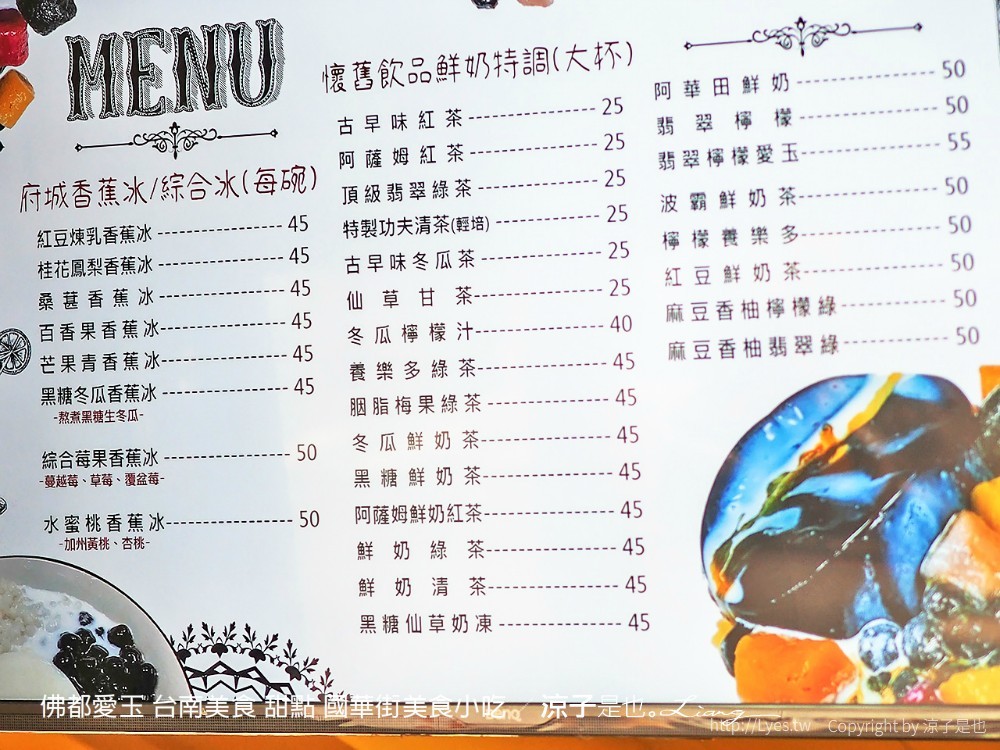 MENU
府城香蕉冰/綜合冰(每碗)
紅豆煉乳香蕉冰 45
桂花鳳梨香蕉冰 45
桑葚香蕉冰 45
百香果香蕉冰 45
芒果青香蕉冰 45
黑糖冬瓜香蕉冰 45
-熬煮黑糖生冬瓜-
綜合莓果香蕉冰 50
-蔓越莓、草莓、覆盆莓-
水蜜桃香蕉冰 50
-加州黃桃、杏桃-
懷舊飲品鮮奶特調(大杯)
古早味紅茶 25
阿薩姆紅茶 25
頂級翡翠綠茶 25
特製功夫清茶(輕培) 25
古早味冬瓜茶 25
仙草甘茶 25
冬瓜檸檬汁 40
養樂多綠茶 45
胭脂梅果綠茶 45
冬瓜鮮奶茶 45
黑糖鮮奶茶 45
阿薩姆鮮奶紅茶 45
鮮奶綠茶 45
鮮奶清茶 45
黑糖仙草奶凍 45
阿華田鮮奶 50
翡翠檸檬 50
翡翠檸檬愛玉 55
波霸鮮奶茶 50
檸檬養樂多 50
紅豆鮮奶茶 50
麻豆香柚檸檬綠 50
麻豆香柚翡翠綠 50
佛都愛玉 台南美食 甜點 國華街美食小吃 / 涼子是也。Liang
http://Lyes.tw Copyright by 涼子是也